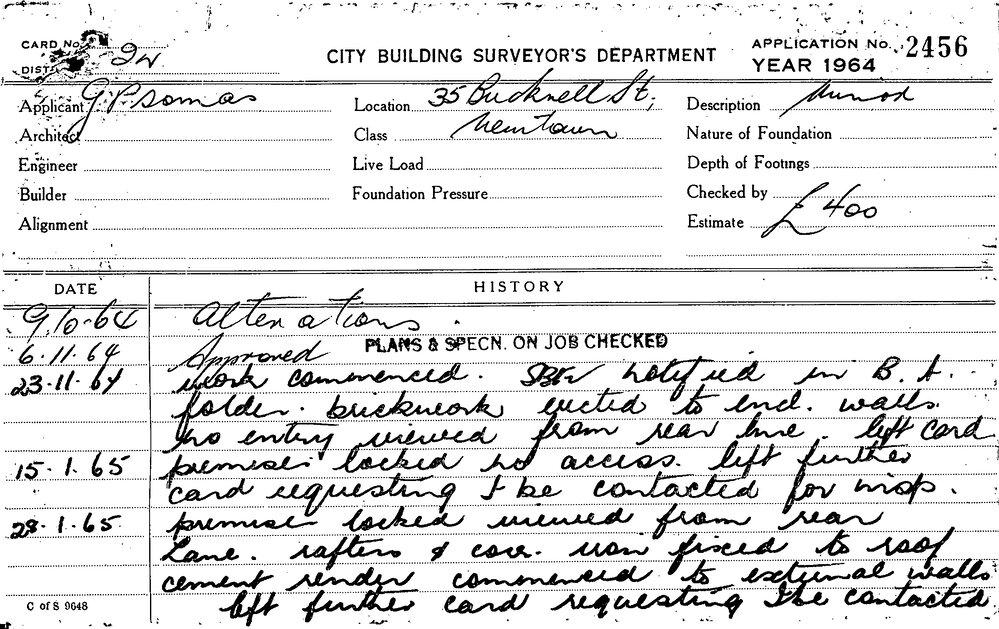 CARD No. 2W
DIST.
CITY BUILDING SURVEYOR'S DEPARTMENT
APPLICATION No. 2456
YEAR 1964
Applicant G. Psomas
Location 35 Bucknell St,
Description
Architect
Class Newtown
Nature of Foundation
Engineer
Live Load
Depth of Footings
Builder
Foundation Pressure
Checked by
Alignment
Estimate £ 400
DATE
HISTORY
9.10-64 Alterations.
6.11.64 Approved PLANS & SPECN. ON JOB CHECKED
23.11.64 work commenced. notified in B.A.
folder. brickwork erected to encl. walls.
no entry viewed from rear lane. left card
15.1.65 premises locked no access. left further
card requesting I be contacted for insp.
28.1.65 premises locked viewed from rear
Lane. rafters & corr. iron fixed to roof
cement render commenced to external walls
C of S 9648 left further card requesting I be contacted